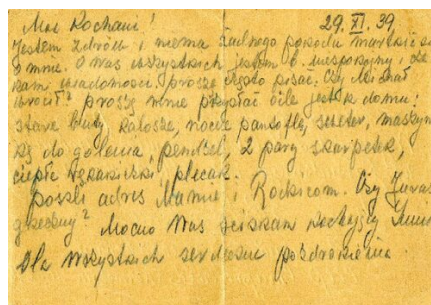 Moi Kochani! 29. XI. 39
Jestem zdrów i niema żadnego powodu martwić się
o mnie. O Was wszystkich jestem b. niespokojny i
kam wiadomości. proszę często pisać. Czy Michał
wrócił? proszę mnie przysłać o ile jest w domu:
stare buty, kalosze, nocne pantofle, sweter, maszyn
kę do golenia, pendzel, 2 pary skarpetek,
ciepłe rękawiczki, plecak.
poszli adres Mamie i Rockicom. Czy Juraś
grzeczny? Mocno Was ściskam kochający
Dla wszystkich serdeczne pozdrowienia